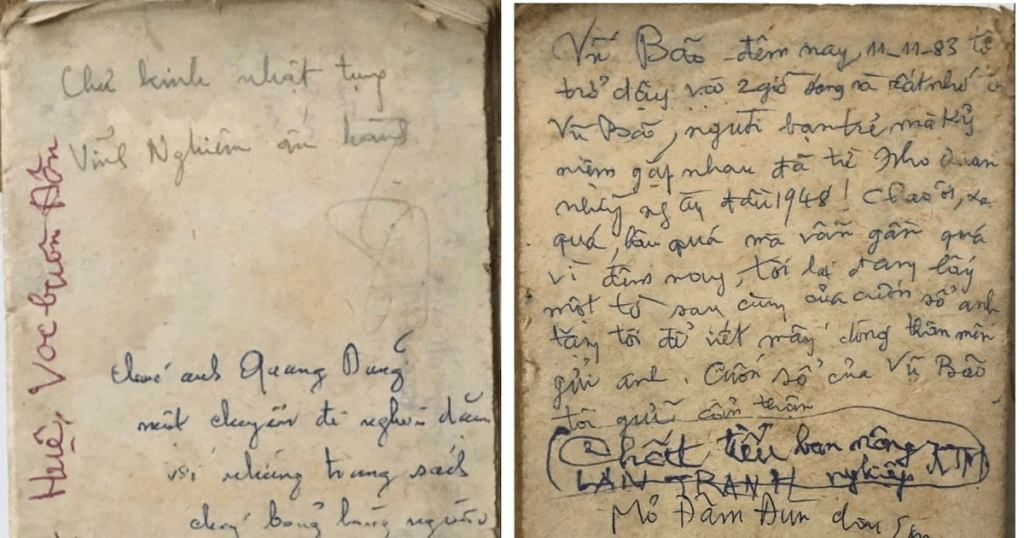 Chú kinh nhật tụng
Vĩnh Nghiêm
Huế, Voc buôn Đôn
chúc anh Quang Dũng
một chuyến đi nghìn dặm
với những trang sách
cháy bỏng
Vũ Bão đêm nay 11-11-83 tôi
trở dậy vào 2 giờ sáng và rất nhớ
Vũ Bão, người bạn trẻ mà kỷ
niệm gặp nhau đã từ Nho Quan
những ngày đầu 1948! Chao ôi, xa
quá, lâu quá mà vẫn gần quá
vì đêm nay, tôi lại đang lấy
một tờ sau cùng của cuốn sổ anh
tặng tôi để viết mấy dòng thân mến
gửi anh. Cuốn sổ của Vũ Bão
tôi giữ cẩn thận
Chất tiểu ban nông
LAN TRANH nghiệp
Mỏ Đầm Đùn